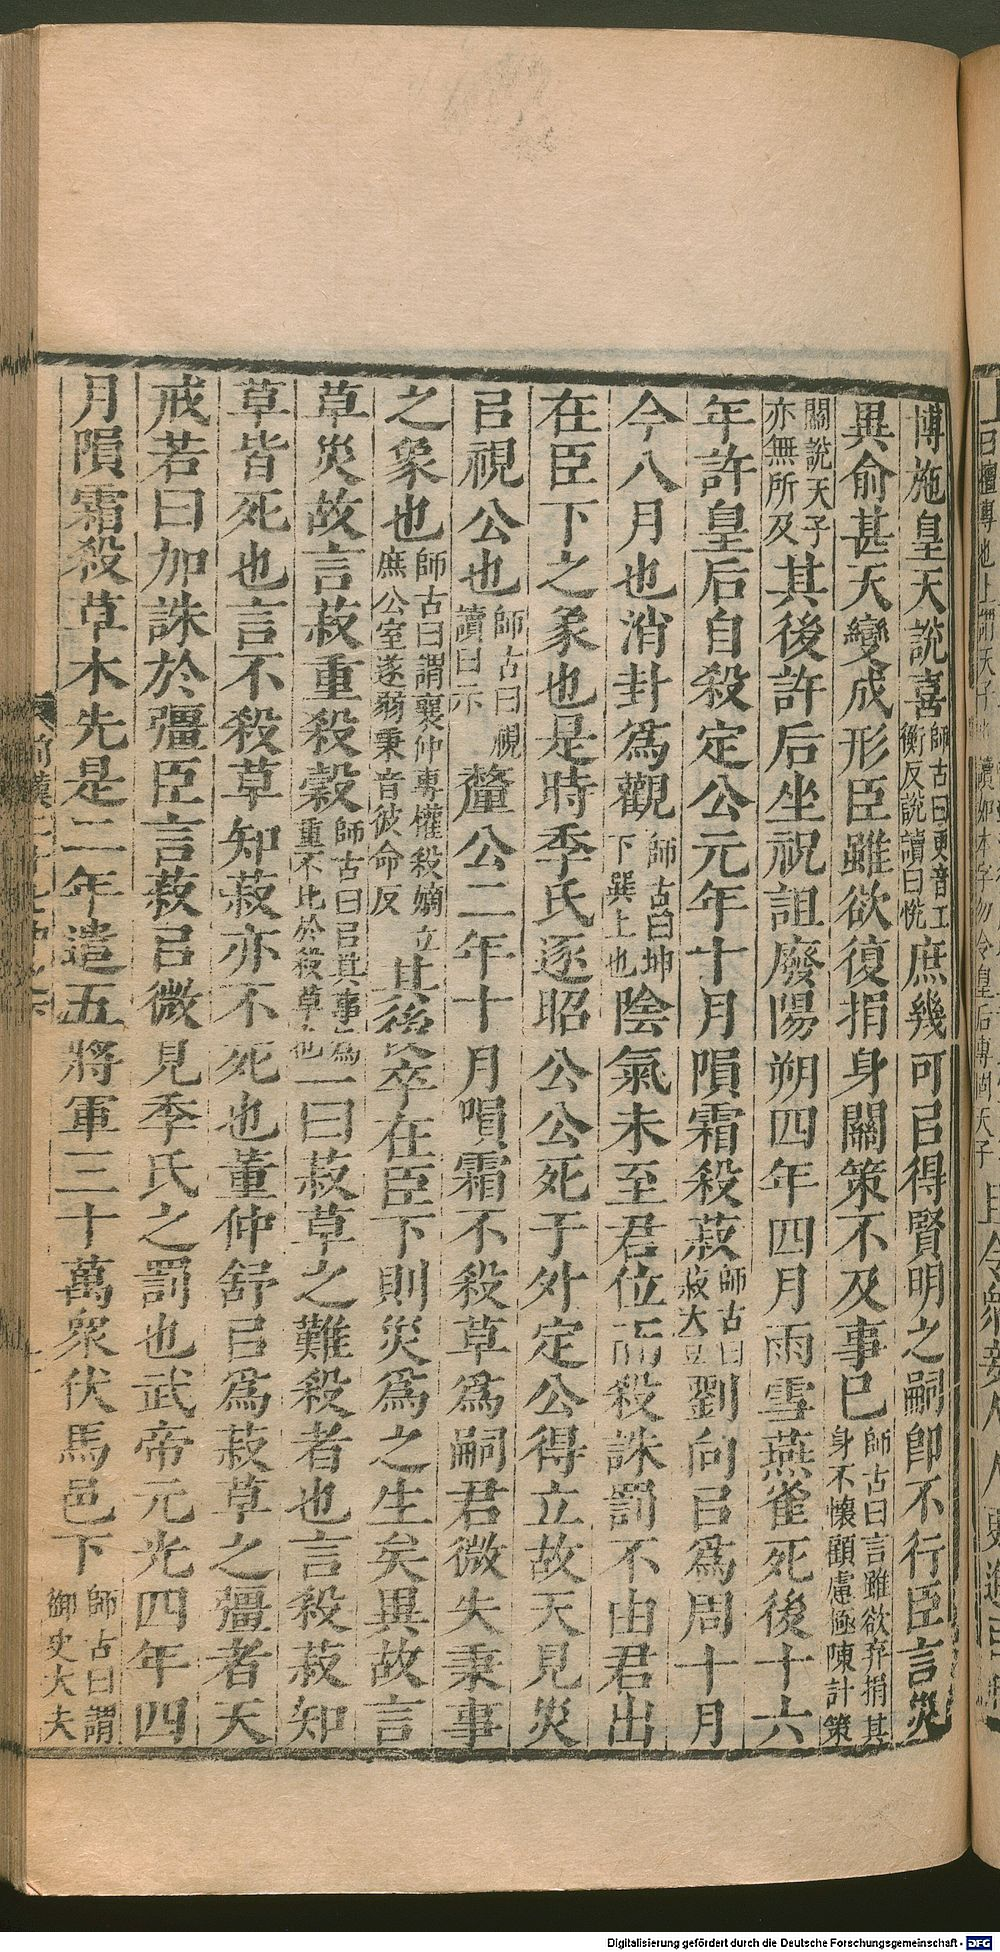 博施皇天說喜師古曰更音工衡反說讀曰悅庶幾可㠯得賢明之嗣卽不行臣言災
異俞甚天變成形臣雖欲復捐身關策不及事已師古曰言雖欲弃捐其身不懷顧慮極陳計策
關說天子亦無所及其後許后坐祝詛廢陽朔四年四月雨雪燕雀死後十六
年許皇后自殺定公元年十月隕霜殺菽師古曰菽大豆劉向㠯爲周十月
今八月也消封爲觀師古曰坤下巽上也陰氣未至君位而殺誅罰不由君出
在臣下之象也是時季氏逐昭公公死于外定公得立故天見災
㠯視公也師古曰視讀曰示釐公二年十月隕霜不殺草爲嗣君微失秉事
之象也師古曰謂襄仲專權殺嫡立庶公室遂弱秉音彼命反其後卒在臣下則災爲之生矣異故言
草災故言菽重殺穀師古曰㠯其事爲重不比於殺草也一曰菽草之難殺者也言殺菽知
草皆死也言不殺草知菽亦不死也董仲舒㠯爲菽草之彊者天
戒若曰加誅於彊臣言菽㠯微見季氏之罰也武帝元光四年四
月隕霜殺草木先是二年遣五將軍三十萬衆伏馬邑下師古曰謂御史大夫
Digitalisierung gefördert durch die Deutsche Forschungsgemeinschaft - DFG